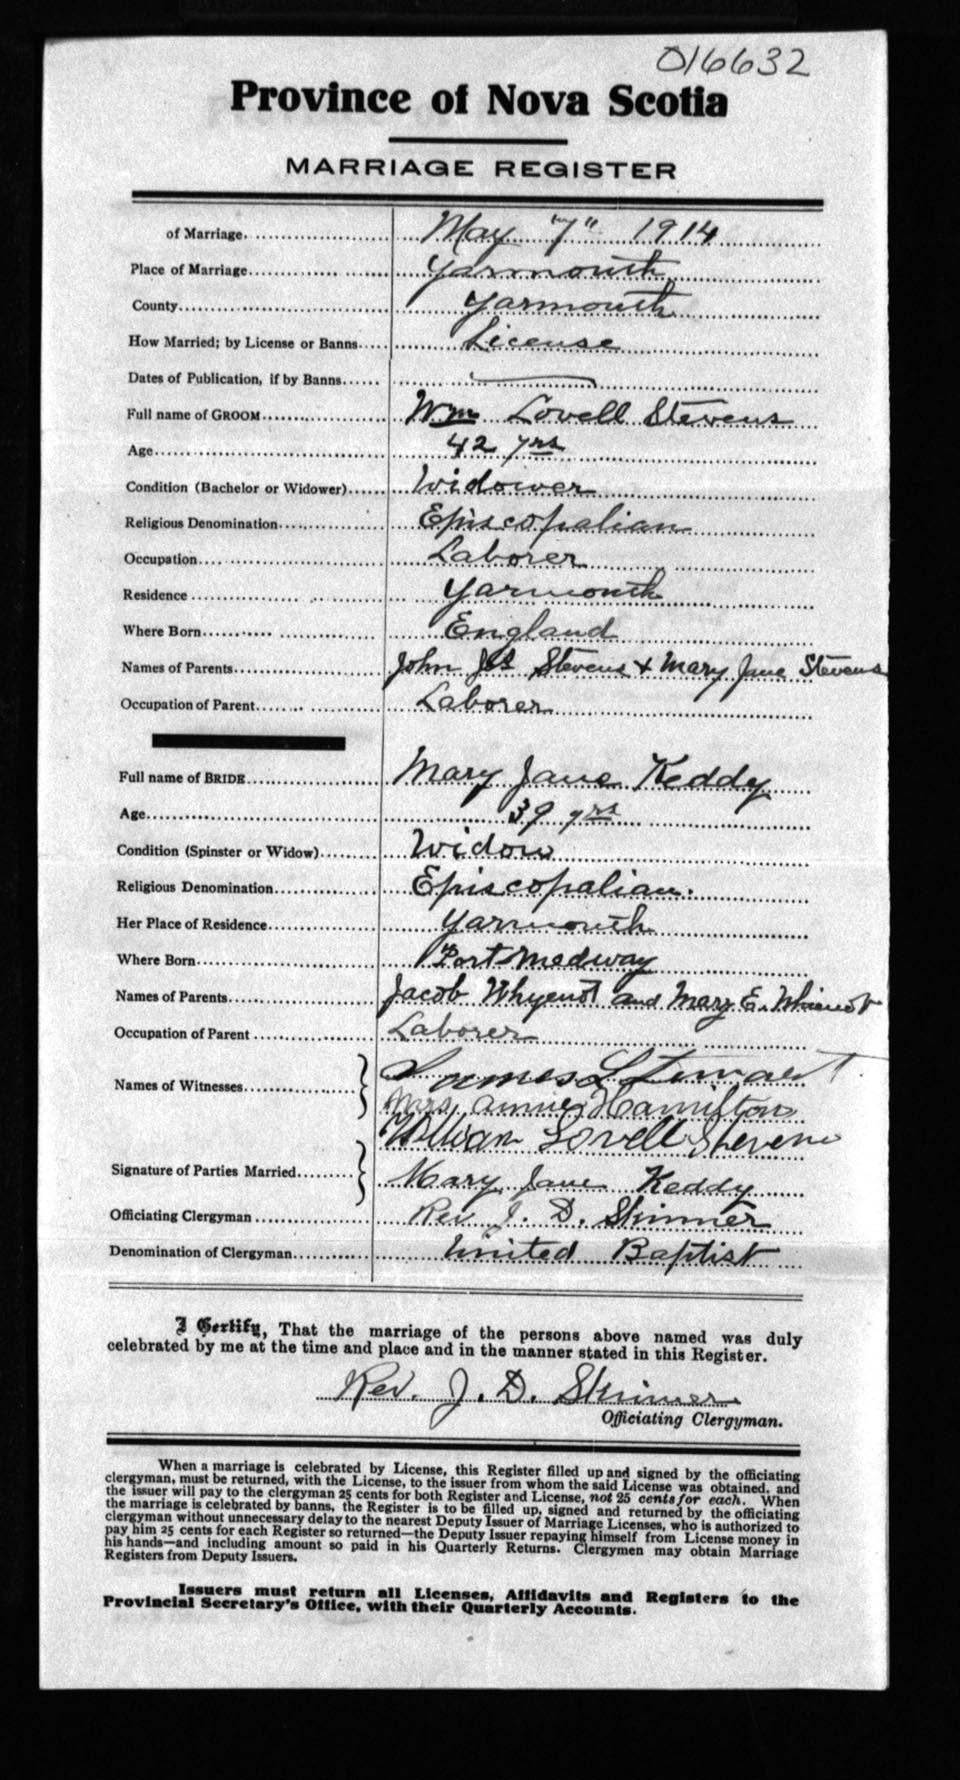 016632
Province of Nova Scotia
MARRIAGE REGISTER
of Marriage May "7" 1914
Place of Marriage Yarmouth
County Yarmouth
How Married; by License or Banns License
Dates of Publication, if by Banns
Full name of GROOM Wm Lovell Stevens
Age 42 yrs
Condition (Bachelor or Widower) Widower
Religious Denomination Episcopalian
Occupation Laborer
Residence Yarmouth
Where Born England
Names of Parents John Stevens & Mary Jane Stevens
Occupation of Parent Laborer
Full name of BRIDE Mary Jane Keddy
Age 39 yrs
Condition (Spinster or Widow) Widow
Religious Denomination Episcopalian.
Her Place of Residence Yarmouth
Where Born Port Medway
Names of Parents Jacob Whyenot and Mary E. Whienot
Occupation of Parent Laborer
Names of Witnesses James L Stewart
Mrs. Annie Hamilton
William Lovell Stevens
Signature of Parties Married Mary Jane Keddy
Officiating Clergyman Rev J. D. Skinner
Denomination of Clergyman United Baptist
I Certify, That the marriage of the persons above named was duly
celebrated by me at the time and place and in the manner stated in this Register.
Rev. J. D. Skinner
Officiating Clergyman.
When a marriage is celebrated by License, this Register filled up and signed by the officiating
clergyman, must be returned, with the License, to the issuer from whom the said License was obtained, and
the issuer will pay to the clergyman 25 cents for both Register and License, not 25 cents for each. When
the marriage is celebrated by banns, the Register is to be filled up, signed and returned by the officiating
clergyman without unnecessary delay to the nearest Deputy Issuer of Marriage Licenses, who is authorized to
pay him 25 cents for each Register so returned—the Deputy Issuer repaying himself from License money in
his hands—and including amount so paid in his Quarterly Returns. Clergymen may obtain Marriage
Registers from Deputy Issuers.
Issuers must return all Licenses, Affidavits and Registers to the
Provincial Secretary's Office, with their Quarterly Accounts.